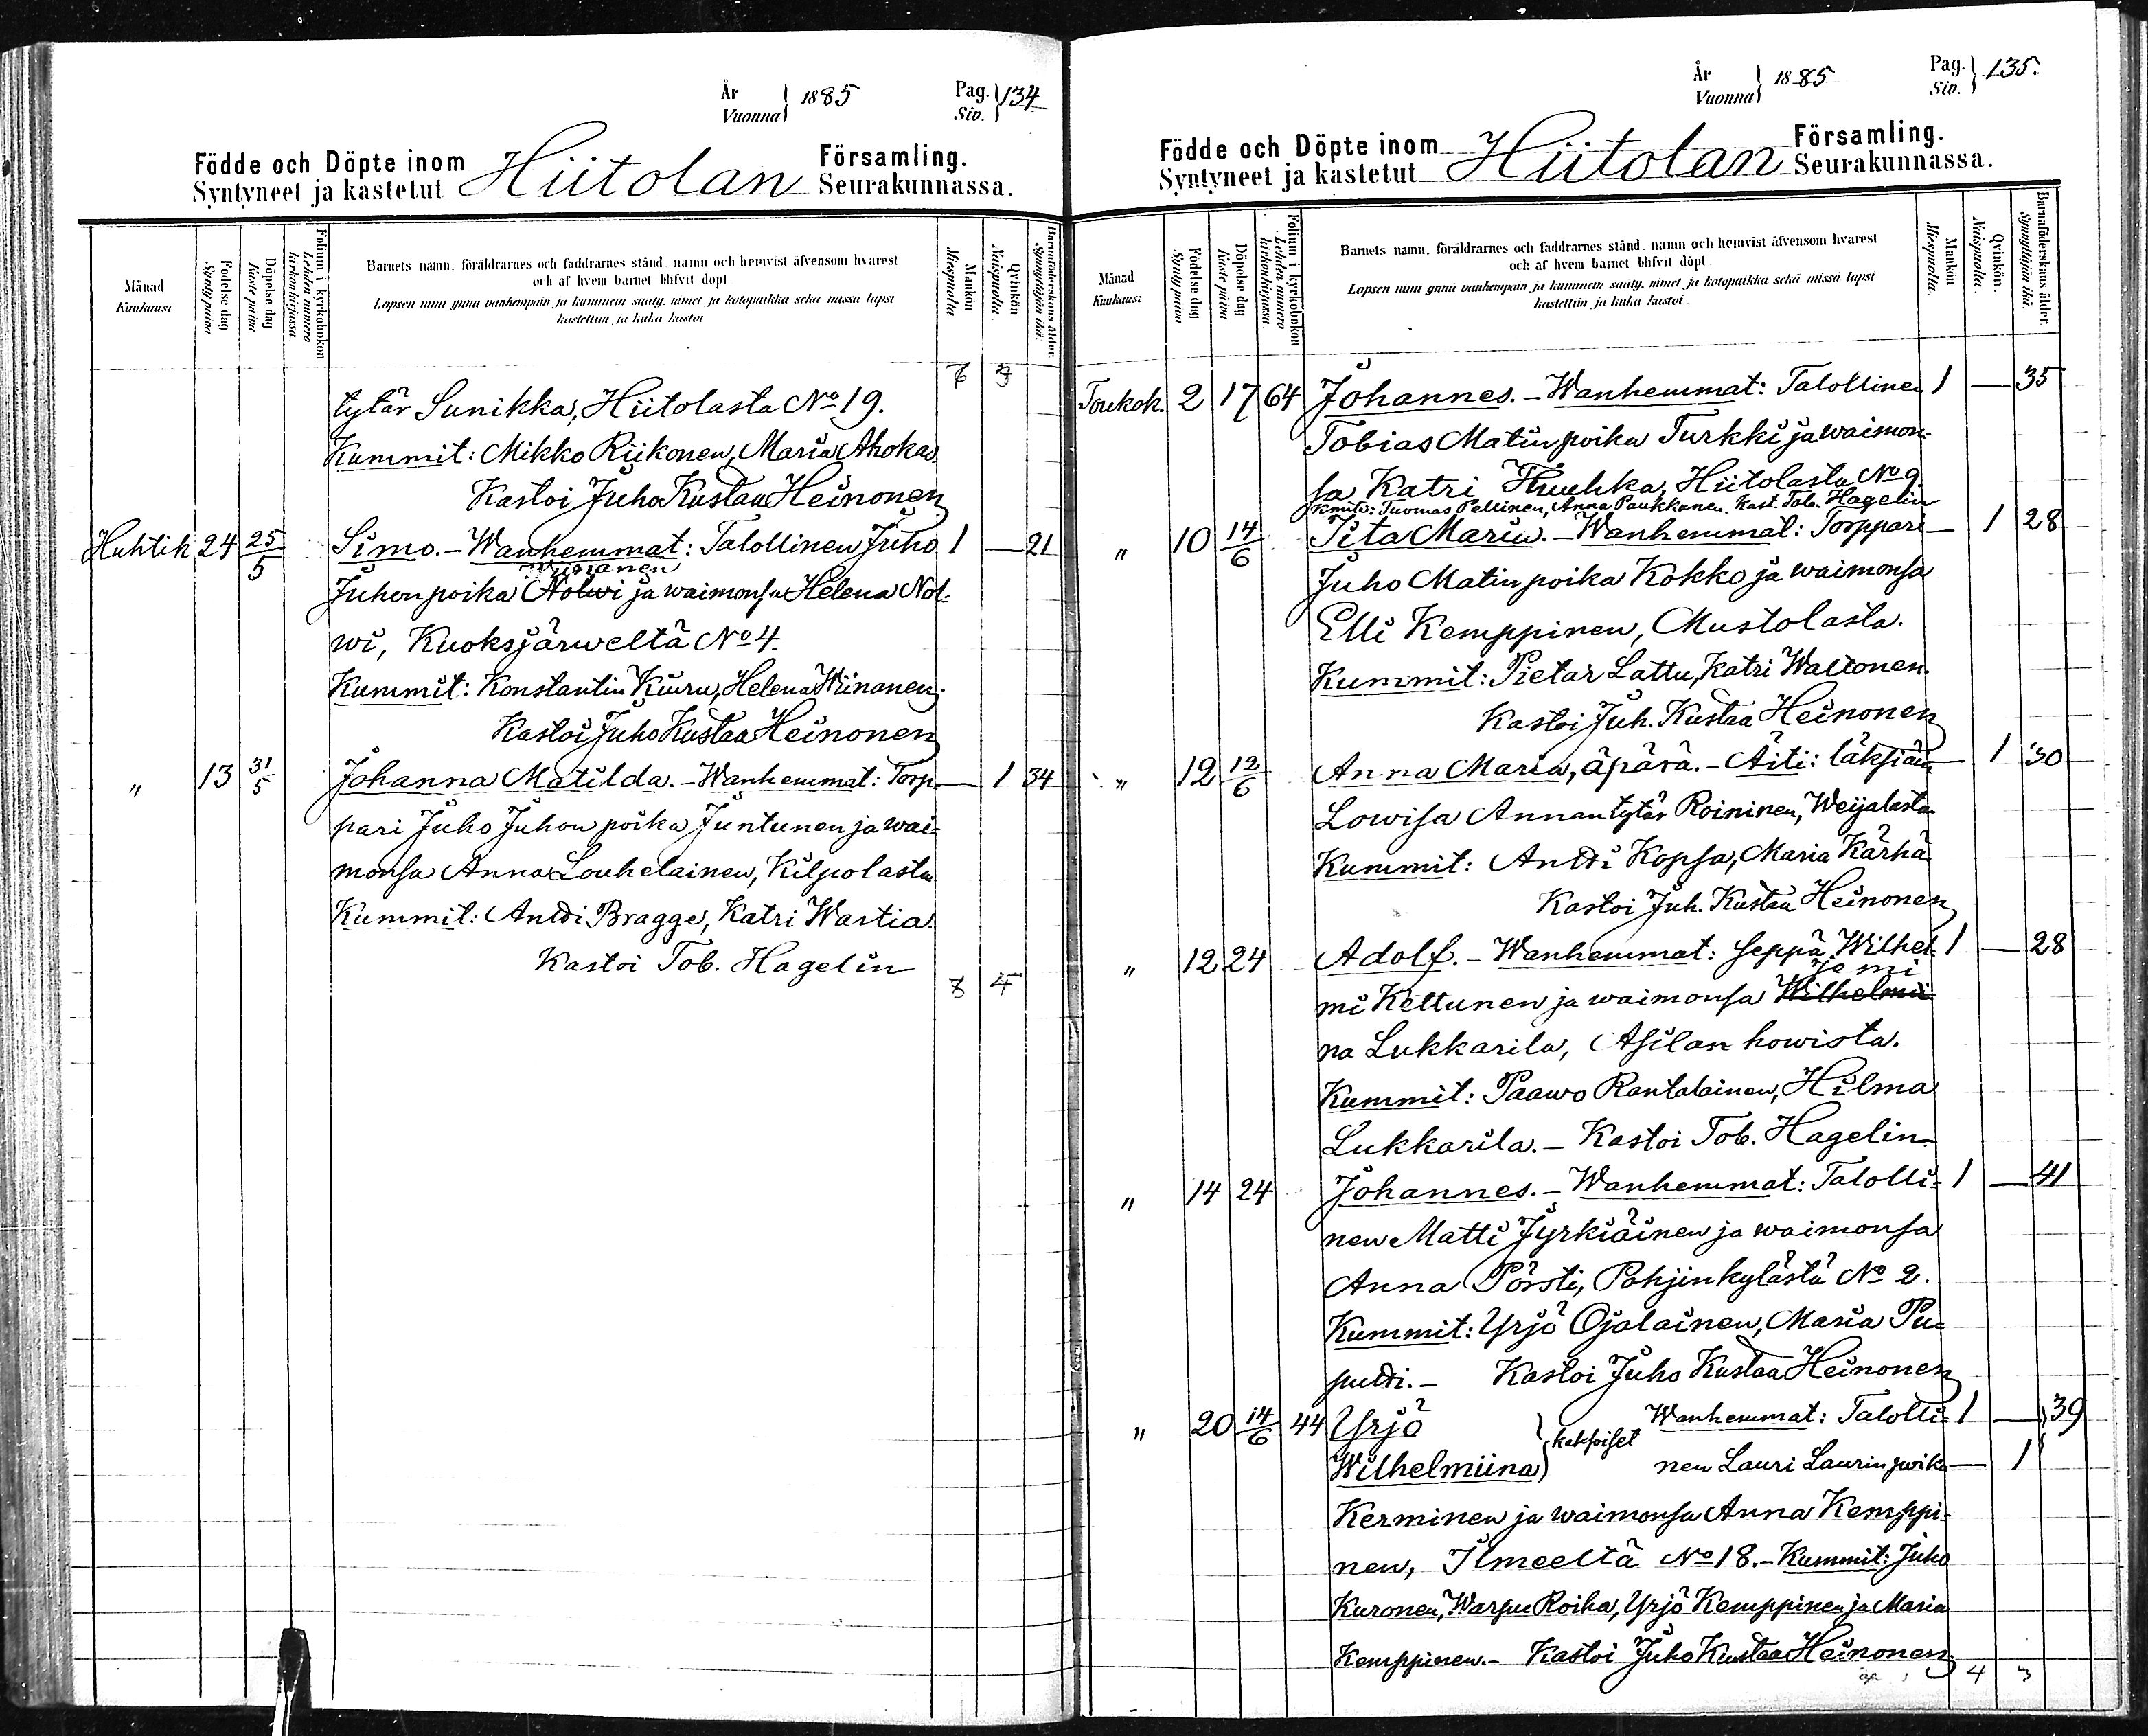 År
Vuonna } 1885
Pag.
Siv. } 134
Födde och Döpte inom Hiitolan Församling.
Syntyneet ja kastetut Seurakunnassa.
Månad
Kuukausi
Födelse dag
Synty päivä
Döpelse dag
Kaste päivä
Folium i kyrkoboken
Lehden numero
kirkonkirjassa
Barnets namn, föräldrarnes och faddrarnes stånd, namn och hemvist äfvensom hvarest
och af hvem barnet blifvit döpt
Lapsen nimi ynnä vanhempain ja kummein sääty, nimet ja kotopaikka sekä missä lapsi
kastettiin ja kuka kastoi
Mankön
Miespuolia
Qvinkön
Naispuolia
Barnaföderskans ålder.
Synnyttäjän ikä.
tytär Sunikka, Hiitolasta No 19.
Kummit: Mikko Riikonen, Maria Ahokas
Kastoi Juho Kustaa Heinonen
Huhtik 24 25/5 Simo. - Wanhemmat: Talollinen Juho 1 — 21
Juhon poika Nolwi ja waimonsa Helena Nol-
wi, Kuoksjärweltä No 4.
Kummit: Konstantin Kiuru, Helena Wiinanen.
Kastoi Juho Kustaa Heinonen
" 13 31/5 Johanna Matilda. - Wanhemmat: Torp- — 1 34
pari Juho Juhon poika Juntunen ja wai-
monsa Anna Louhelainen, Kilpolasta
Kummit: Antti Bragge, Katri Wastia.
Kastoi Tob. Hagelin
8 4
År
Vuonna } 1885
Pag.
Siv. } 135.
Födde och Döpte inom Hiitolan Församling.
Syntyneet ja kastetut Seurakunnassa.
Månad
Kuukausi
Födelse dag
Synty päivä
Döpelse dag
Kaste päivä
Folium i kyrkoboken
Lehden numero
kirkonkirjassa.
Barnets namn, föräldrarnes och faddrarnes stånd, namn och hemvist äfvensom hvarest
och af hvem barnet blifvit döpt
Lapsen nimi ynnä vanhempain ja kummein sääty, nimet ja kotopaikka sekä missä lapsi
kastettiin ja kuka kastoi.
Mankön
Miespuolia.
Qvinkön.
Naispuolia.
Barnaföderskans ålder.
Synnyttäjän ikä.
Toukok. 2 17 64 Johannes. - Wanhemmat: Talollinen 1 — 35
Tobias Matin poika Turkki ja waimon-
sa Katri Hiitolasta No 9.
Kmit: Tuomas Pellinen, Anna Paukkunen. Kast. Tob. Hagelin
" 10 14/6 Iita Maria. - Wanhemmat: Torppari — 1 28
Juho Matin poika Kokko ja waimonsa
Elli Kemppinen, Mustolasta.
Kummit: Pietar Lattu, Katri Waltonen.
Kastoi Juh. Kustaa Heinonen
" 12 12/6 Anna Maria, äpärä. - Äiti: läksiäin — 1 30
Lowisa Annan tytär Roininen, Weijalasta
Kummit: Antti Kopsa, Maria Kärhä
Kastoi Juh. Kustaa Heinonen
" 12 24 Adolf. - Wanhemmat: seppä Wilhel- 1 — 28
mi Kettunen ja waimonsa Wilhelmii
na Lukkarila, Asilan howista.
Kummit: Paawo Rantalainen, Hilma
Lukkarila. - Kastoi Tob. Hagelin.
" 14 24 Johannes. - Wanhemmat: Talolli- 1 — 41
nen Matti Jyrkiäinen ja waimonsa
Anna Pörsti, Pohjinkylästä No 2.
Kummit: Yrjö Ojalainen, Maria Pu-
putti. - Kastoi Juho Kustaa Heinonen
" 20 14/6 44 Yrjö } kaksoiset Wanhemmat: Talolli- 1 — 39
Wilhelmiina nen Lauri Laurin poika — 1
Kerminen ja waimonsa Anna Kemppi-
nen, Ilmeeltä No 18. - Kummit: Juho
Kuronen, Warpu Roiha, Yrjö Kemppinen ja Maria
Kemppinen. - Kastoi Juho Kustaa Heinonen.
4 3